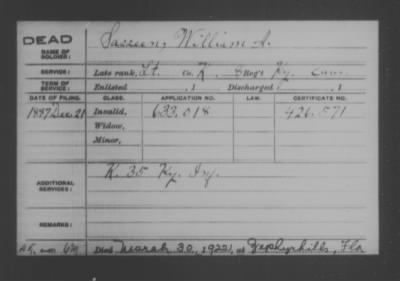 DEAD
NAME OF SOLDIER: Sasseen, William A.
SERVICE: Late rank, Lt. Co. K, 8 Reg't Ky. Cav.
TERM OF SERVICE: Enlisted , 1 Discharged , 1
DATE OF FILING. CLASS. APPLICATION NO. LAW. CERTIFICATE NO.
1887 Dec. 21 Invalid, 633.018 426.571
Widow,
Minor,
ADDITIONAL SERVICES: K. 35 Ky. Inf.
REMARKS:
Died March 30, 1922, at Zephyrhills, Fla